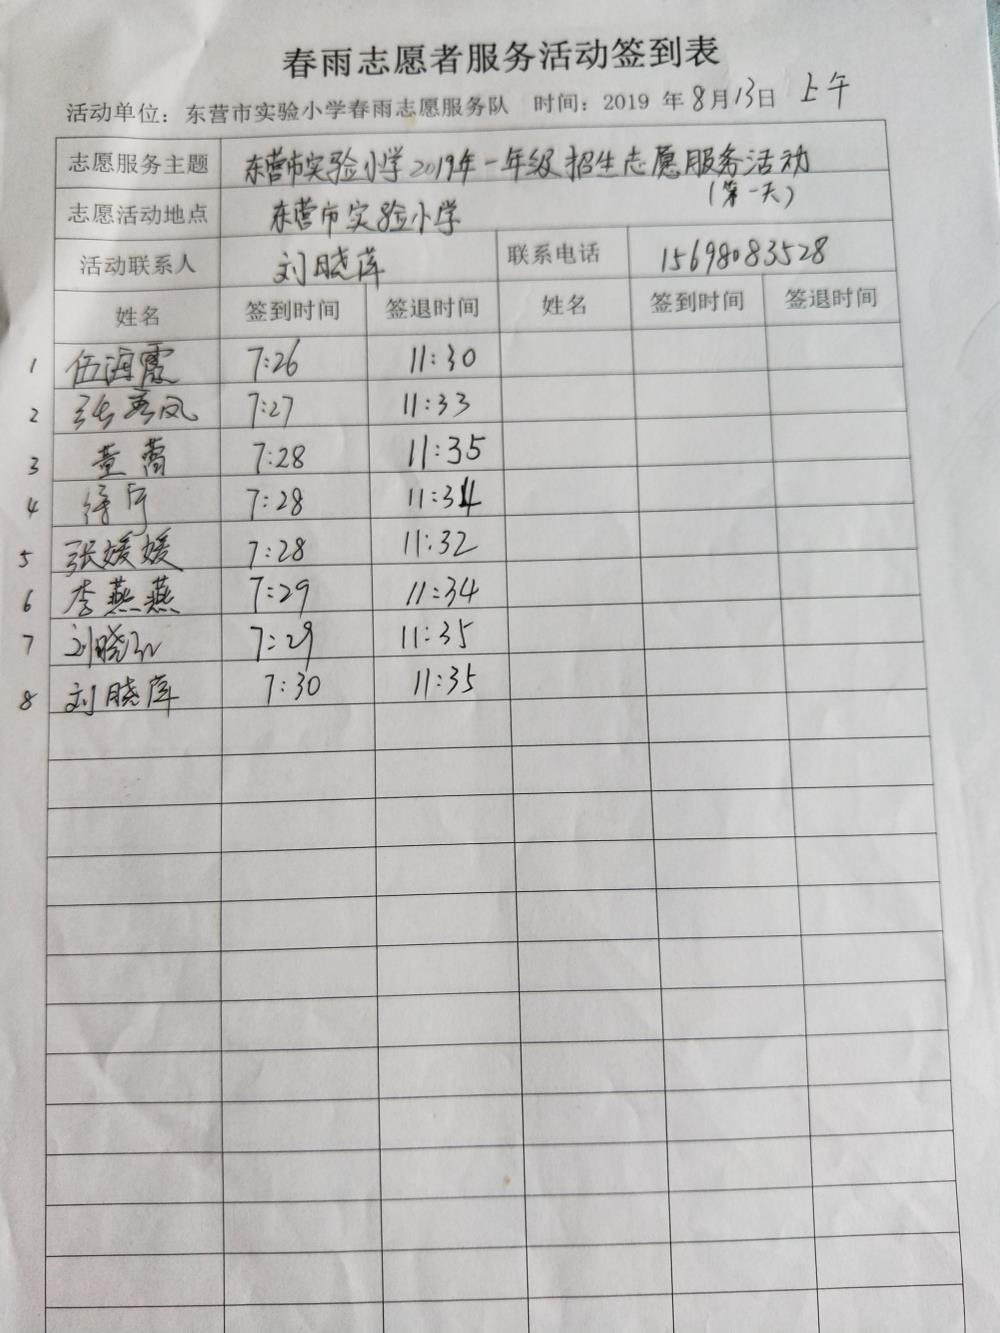 春雨志愿者服务活动签到表
活动单位：东营市实验小学春雨志愿服务队 时间：2019 年 8 月 13 日 上午
志愿服务主题 东营市实验小学2019年一年级招生志愿服务活动
(第一天)
志愿活动地点 东营市实验小学
活动联系人 刘晓萍 联系电话 15698083528
姓名 签到时间 签退时间 姓名 签到时间 签退时间
1 伍海霞 7:26 11:30
2 张秀凤 7:27 11:33
3 董蕾 7:28 11:35
4 7:28 11:31
5 张媛媛 7:28 11:32
6 李燕燕 7:29 11:34
7 刘晓 7:29 11:35
8 刘晓萍 7:30 11:35